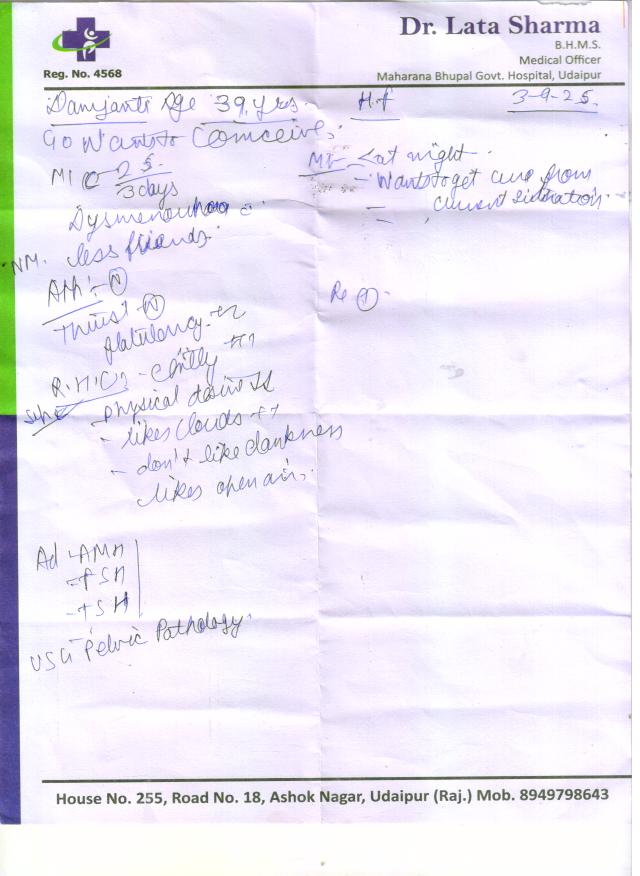 Dr. Lata Sharma
B.H.M.S.
Medical Officer
Maharana Bhupal Govt. Hospital, Udaipur
Reg. No. 4568
Age 39 yrs. H.f 3-9-25.
Wants to Conceive.
M/C 25
3 days
Dysmenorrhoea
less friends.
Thirst (N)
flatulency
R.H.C
physical desire
- likes clouds ++
- don't like darkness
likes open air.
<at night
- Wants to get cure from
current situation
Ad - AMH
- FSH
- TSH
USG Pelvic Pathology.
House No. 255, Road No. 18, Ashok Nagar, Udaipur (Raj.) Mob. 8949798643